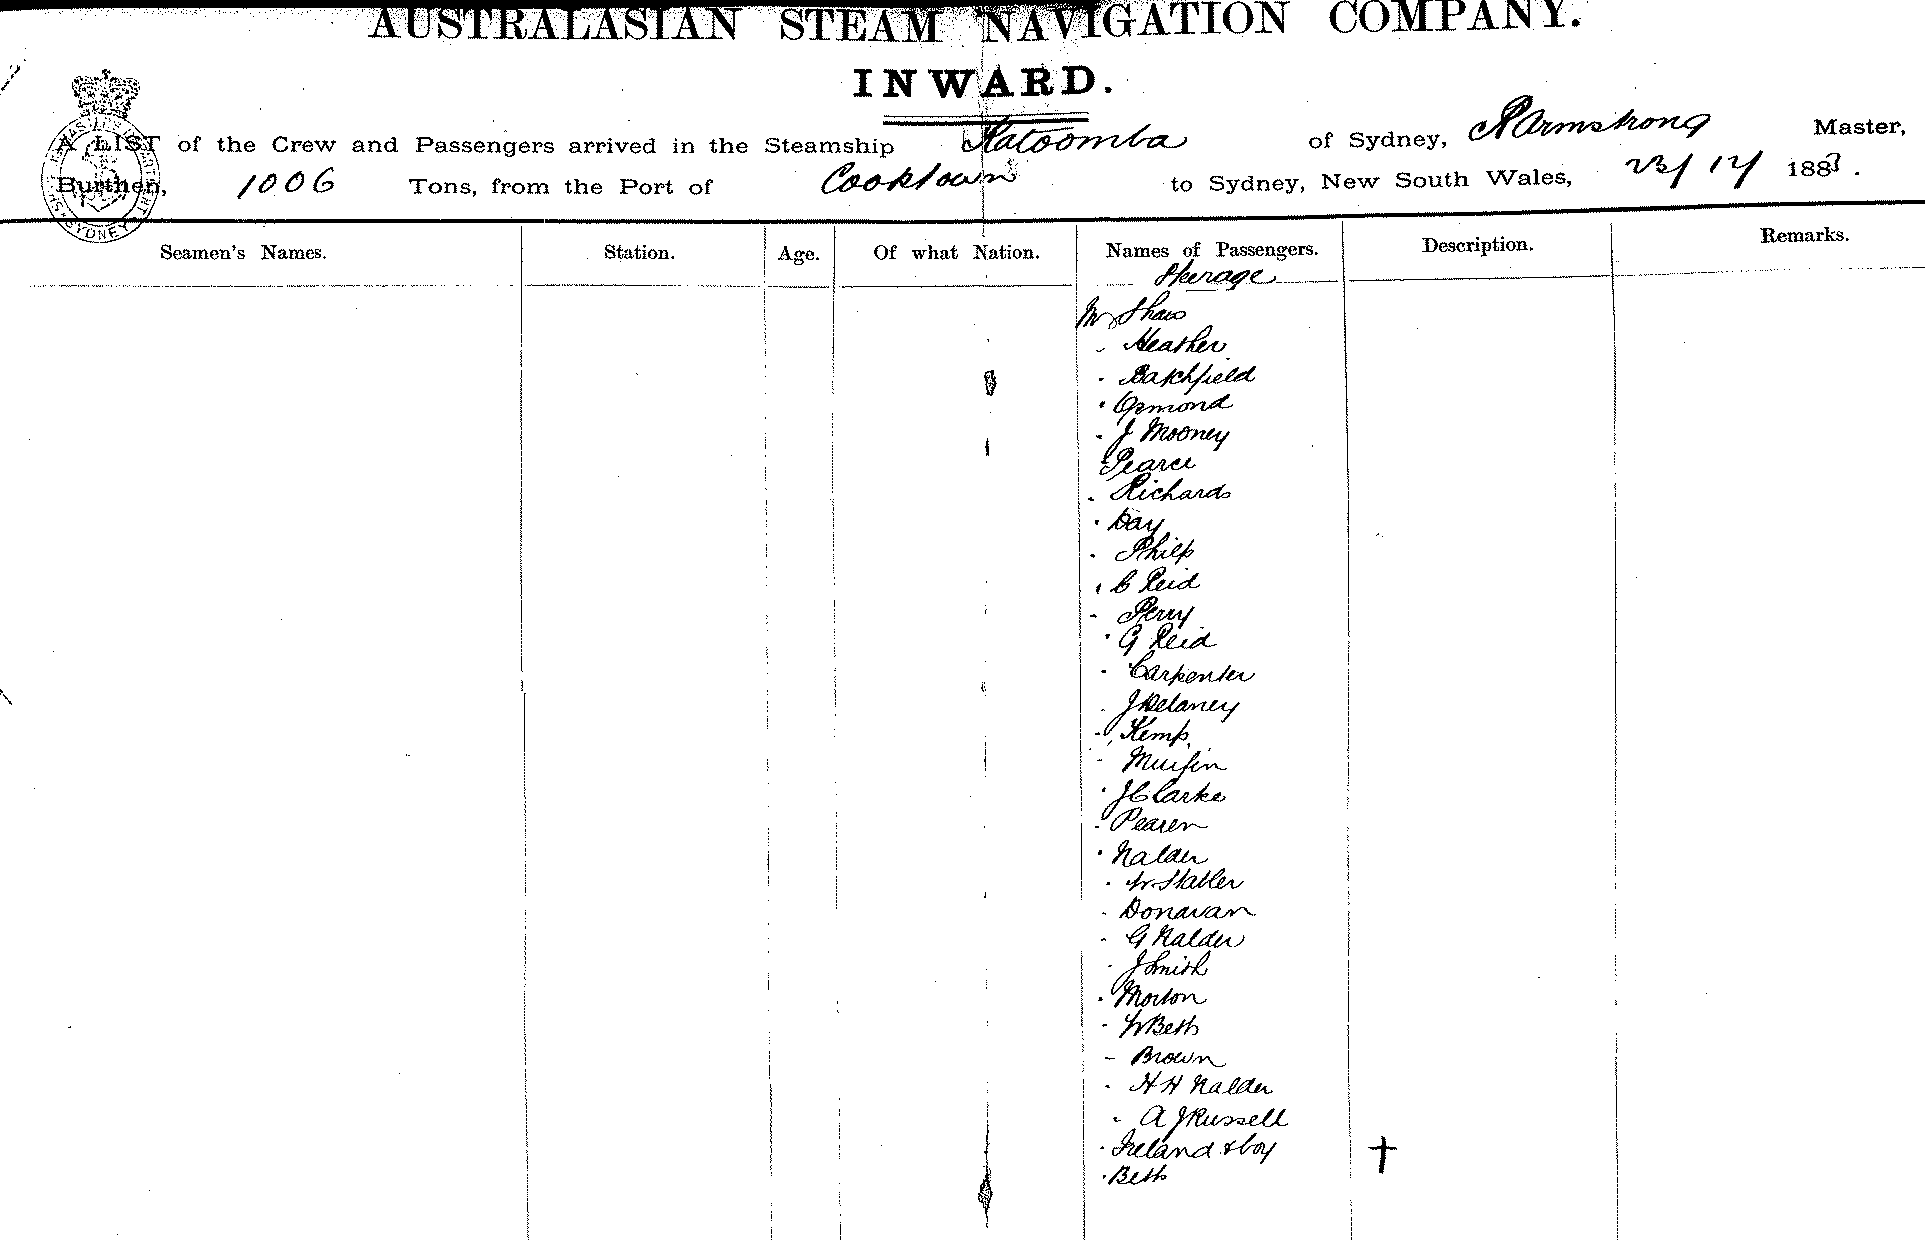 AUSTRALASIAN STEAM NAVIGATION COMPANY.
INWARD.
A LIST of the Crew and Passengers arrived in the Steamship Katoomba of Sydney, Armstrong Master,
Burthen, 1006 Tons, from the Port of Cooktown to Sydney, New South Wales, 23/12/ 1883.
Seamen's Names. Station. Age. Of what Nation. Names of Passengers. Description. Remarks.
Steerage
Mr Shaw
" Heather
" Batchfield
" Ormond
" J Mooney
" Pearce
" Richards
" Day
" Philp
" C Reid
" Perry
" G Reid
" Carpenter
" J Delaney
" Kemp
"
" J Clarke
" Pearen
" Nalder
" W Statler
" Donavan
" G Nalder
" J Smith
" Morton
" W Beth
" Brown
" H H Nalder
" A J Russell
" Ireland & boy
" Beth